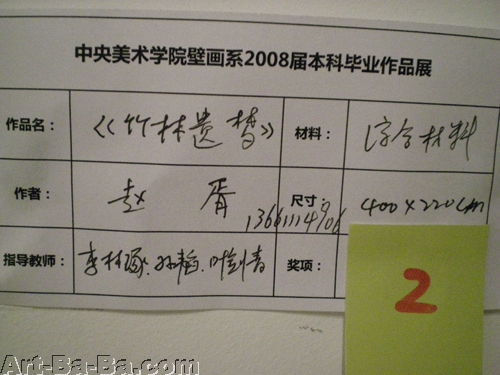 中央美术学院壁画系2008届本科毕业作品展
作品名： 《竹林遗梦》 材料： 综合材料
作者： 赵 胥 尺寸： 400×220cm
指导教师： 李林琢、孙韬、叶剑青 奖项：
2
Art-Ba-Ba.com/